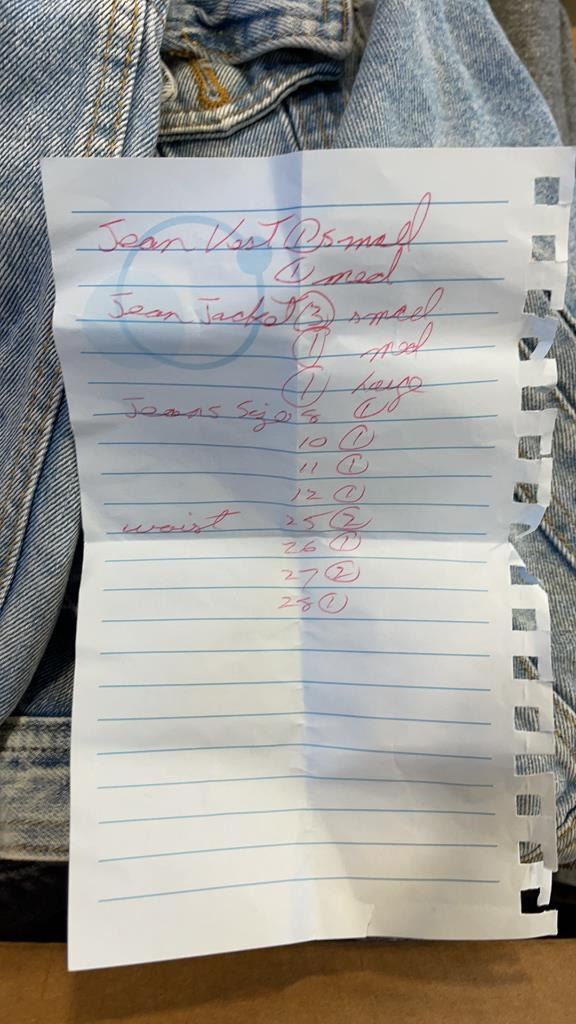 Jean Vest ① small
① med
Jean Jacket ③ small
① med
① Large
Jeans Size 8 ①
10 ①
11 ①
12 ①
waist 25 ②
26 ①
27 ②
28 ①